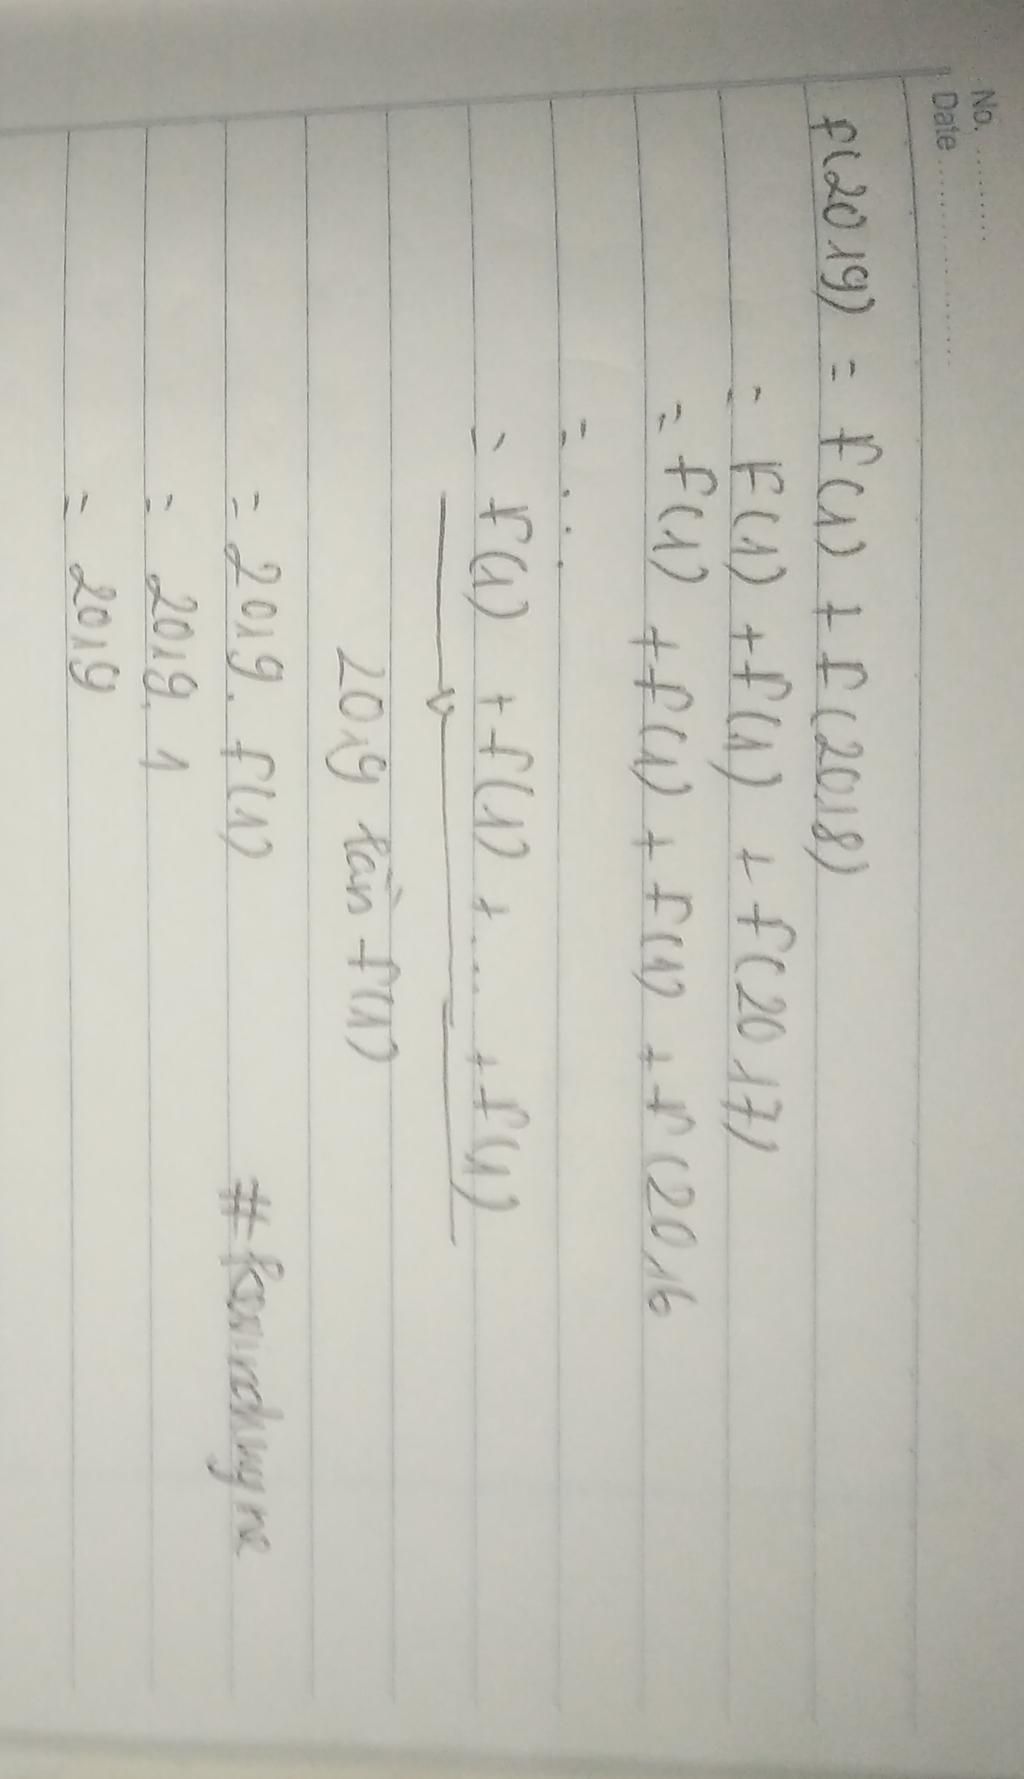 No. ..........
Date ..................
f(2019) = f(1) + f(2018)
= f(1) + f(1) + f(2017)
= f(1) + f(1) + f(1) + f(2016
= ...
= f(1) + f(1) + .... + f(1)
2019 lần f(1)
= 2019. f(1)
= 2019. 1
= 2019